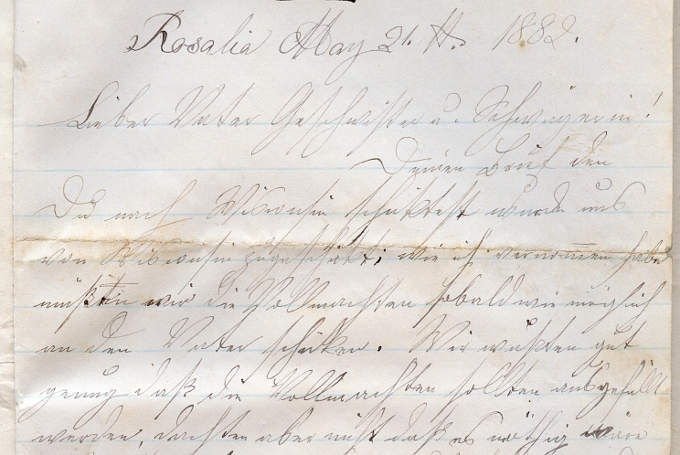 Rosalia May 21. st. 1882.
Lieber Vater Geschwister u. Schwägerin!
Deinen Brief den
Du nach Wisconsin schicktest wurde uns
von Wisconsin zugeschickt; wie ich vernommen habe
müßten wir die Vollmachten sobald wie möglich
an den Vater schicken. Wir wußten gut
genug daß die Vollmachten sollten ausgefüllt
werden, dachten aber nicht daß es nöthig wäre